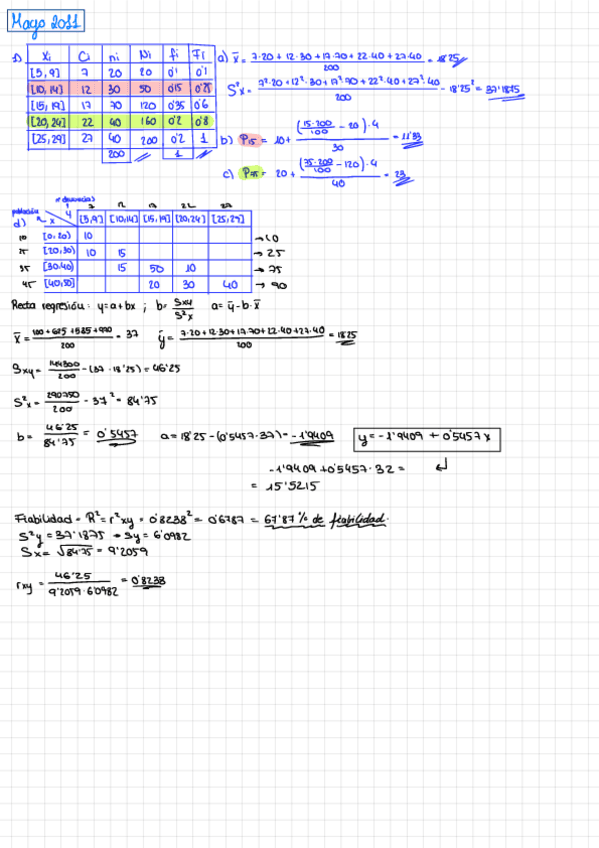 Mayo 2011
1) Xi Ci ni Ni fi Fi
[5,9] 7 20 20 0'1 0'1
[10,14] 12 30 50 0'15 0'25
[15,19] 17 70 120 0'35 0'6
[20,24] 22 40 160 0'2 0'8
[25,29] 27 40 200 0'2 1
200 1
a) x̄ = 7·20 + 12·30 + 17·70 + 22·40 + 27·40 / 200 = 18'25
S²x = 7²·20 + 12²·30 + 17²·70 + 22²·40 + 27²·40 / 200 - 18'25² = 37'1875
b) P15 = 10 + (15·200/100 - 20)·4 / 30 = 11'33
c) P75 = 20 + (75·200/100 - 120)·4 / 40 = 23
7 12 17 22 27
d) población x y [5,9] [10,14] [15,19] [20,24] [25,29]
10 [0,20) 10 → 10
25 [20,30) 10 15 → 25
35 [30,40) 15 50 10 → 75
45 [40,50] 20 30 40 → 90
Recta regresión: y = a + bx ; b = Sxy / S²x a = ȳ - b·x̄
x̄ = 100 + 625 + 2625 + 4050 / 200 = 37 ȳ = 7·20 + 12·30 + 17·70 + 22·40 + 27·40 / 200 = 18'25
Sxy = 144300 / 200 - (37·18'25) = 46'25
S²x = 290750 / 200 - 37² = 84'75
b = 46'25 / 84'75 = 0'5457 a = 18'25 - (0'5457·37) = -1'9409 y = -1'9409 + 0'5457x
-1'9409 + 0'5457·32 =
= 15'5215
Fiabilidad = R² = r²xy = 0'8238² = 0'6787 = 67'87% de fiabilidad.
S²y = 37'1875 → Sy = 6'0982
Sx = √84'75 = 9'2059
rxy = 46'25 / 9'2059·6'0982 = 0'8238